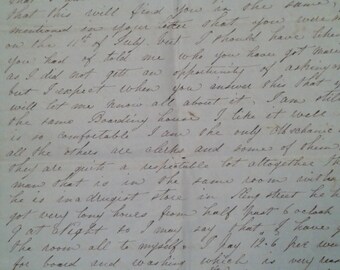 that this will find you in the same,
mentioned in your letter that you were
on the 11th of July but I should have like
you had of told me who you have got mar
as I did not gett an oppertunity of asking
but I expect when you answer this that y
will let me know all about it. I am still
the same Boarding house I like it well
is so comfortable I am the only Mechanic
all the others are clerks and some of them
they are quite a respectable lot altogether th
man that is in the same room with
he is in a drugist store in King street he h
got very long hours from half past 6 oclock
9 at Night so I may say that I have g
the room all to myself I pay 18.6 per wee
for board and washing which is very reas